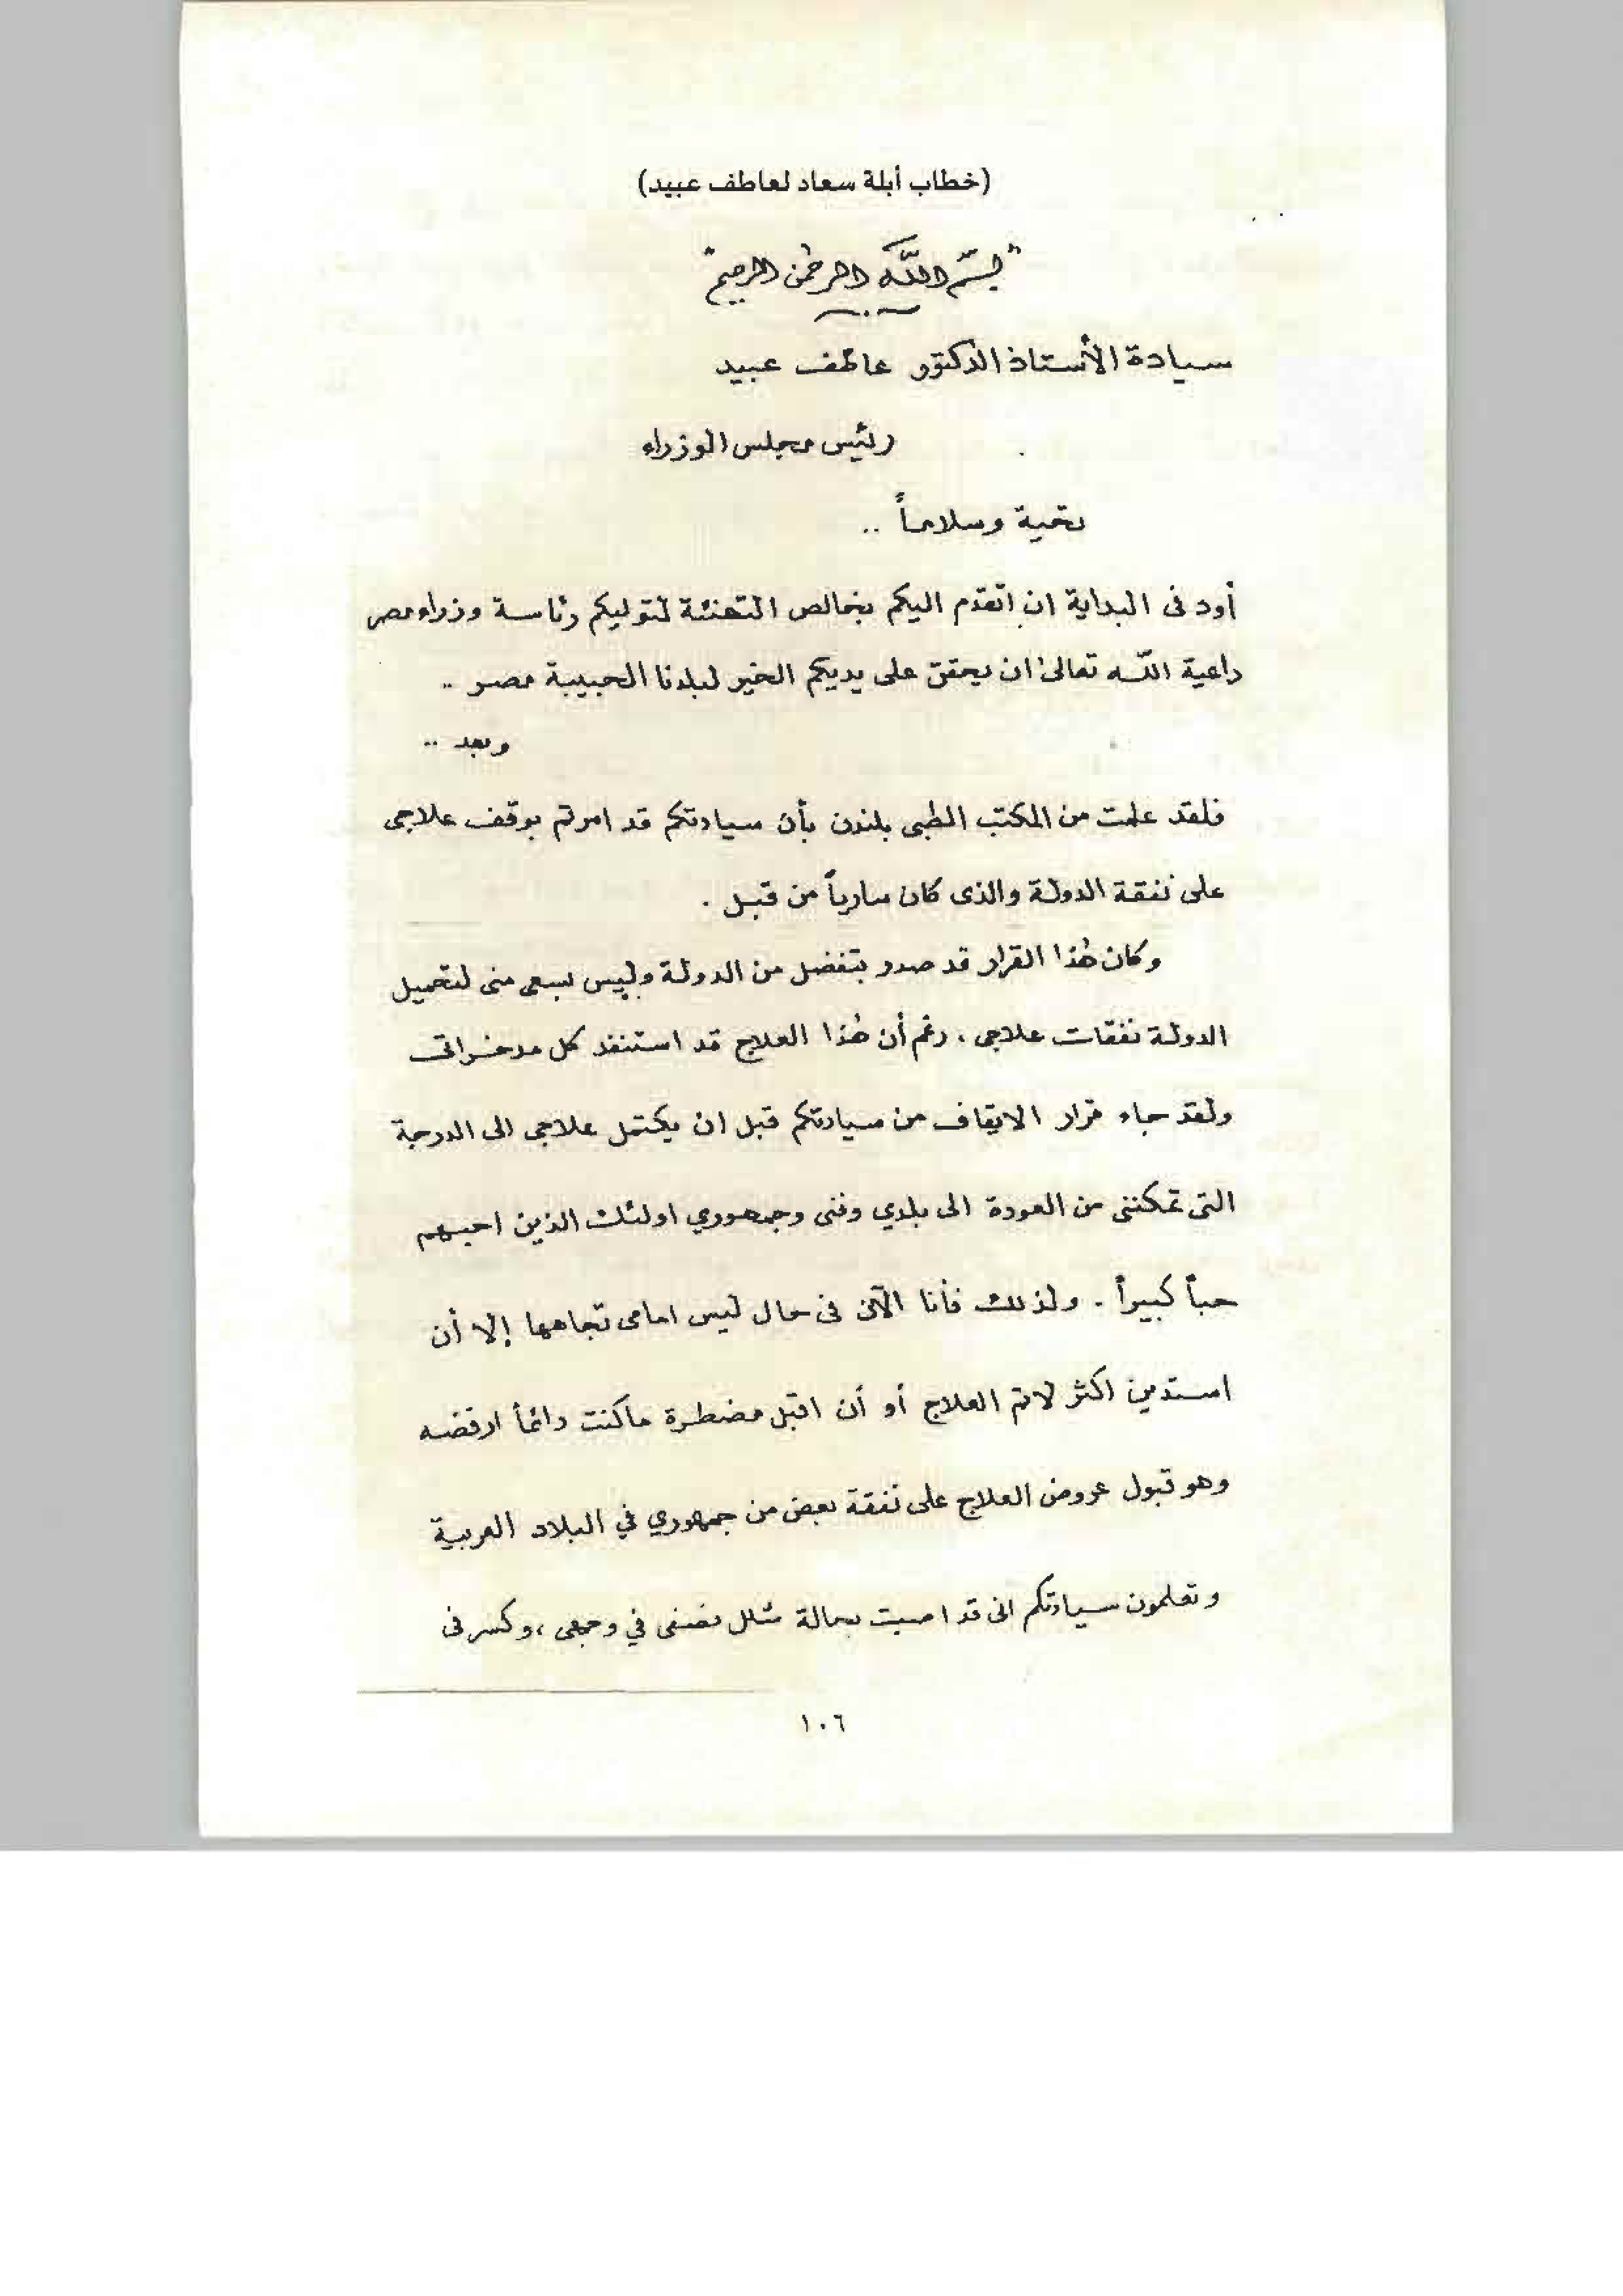 (خطاب أبلة سعاد لعاطف عبيد)
"بسم الله الرحمن الرحيم"
سيادة الأستاذ الدكتور عاطف عبيد
رئيس مجلس الوزراء
تحية وسلاماً ..
أود فى البداية ان اتقدم اليكم بخالص التهنئة لتوليكم رئاسة وزراء مصر
داعية الله تعالى ان يحقق على يديكم الخير لبلدنا الحبيبة مصر ..
وبعد ..
فلقد علمت من المكتب الطبى بلندن بأن سيادتكم قد امرتم بوقف علاجى
على نفقة الدولة والذى كان سارياً من قبل .
وكان هذا القرار قد صدر بتفضل من الدولة وليس بسعى منى لتحميل
الدولة نفقات علاجى ، رغم أن هذا العلاج قد استنفد كل مدخراتى
ولقد جاء قرار الايقاف من سيادتكم قبل ان يكتمل علاجى الى الدرجة
التى تمكننى من العودة الى بلدي وفنى وجمهوري اولئك الذين احبهم
حباً كبيراً . ولذلك فأنا الآن فى حال ليس امامى تجاهها إلا أن
استدين اكثر لاتم العلاج أو أن اقبل مضطرة ماكنت دائماً ارفضه
وهو قبول عروض العلاج على نفقة بعض من جمهوري في البلاد العربية
وتعلمون سيادتكم انى قد اصبت بحالة شلل نصفى في وجهى ، وكسر فى
١٠٦